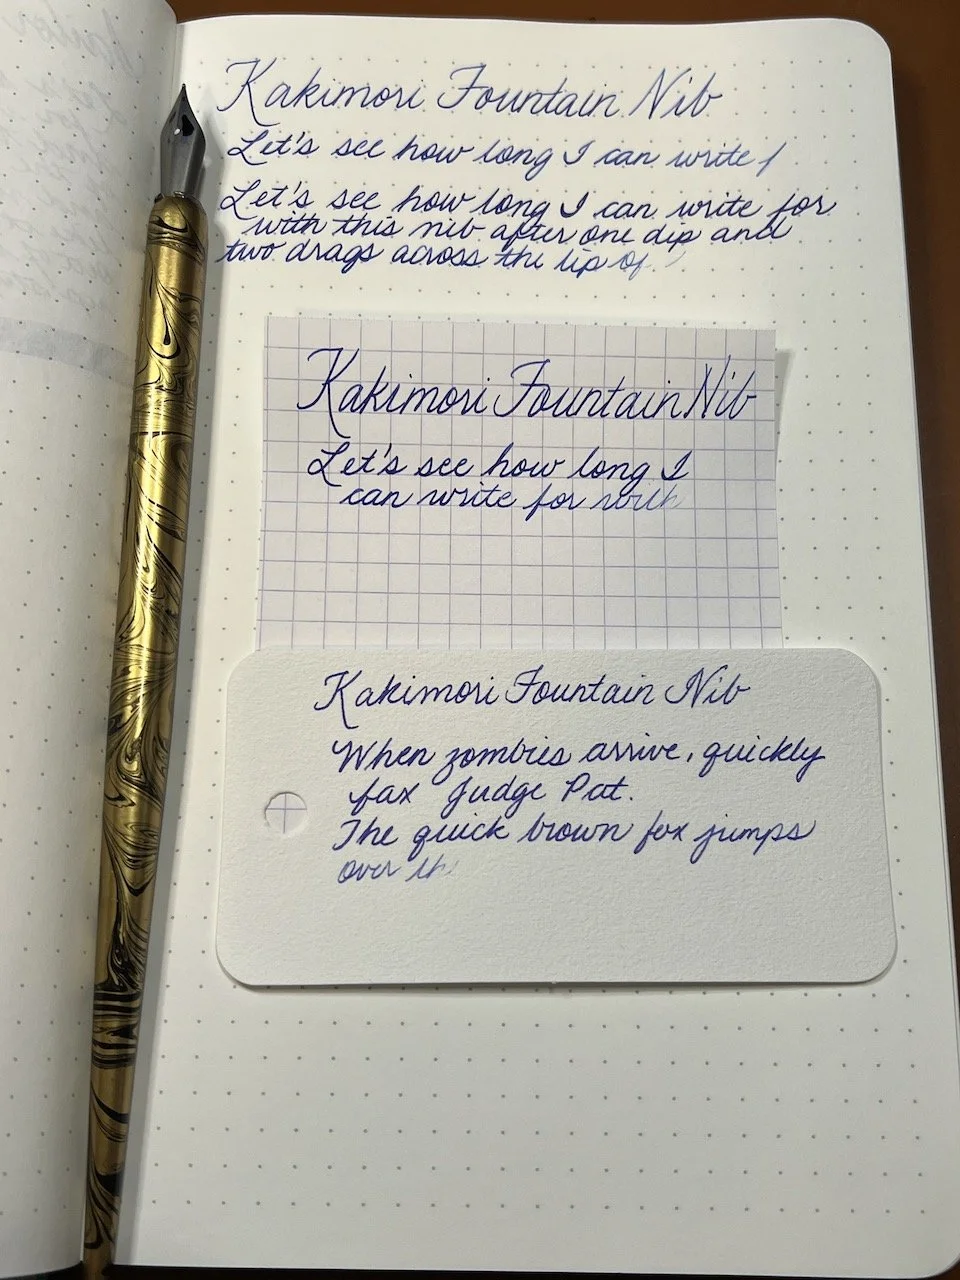 Kakimori Fountain Nib
Let's see how long I can write f
Let's see how long I can write for
with this nib after one dip and
two drags across the lip of
Kakimori Fountain Nib
Let's see how long I
can write for with
Kakimori Fountain Nib
When zombies arrive, quickly
fax Judge Pat.
The quick brown fox jumps
over th